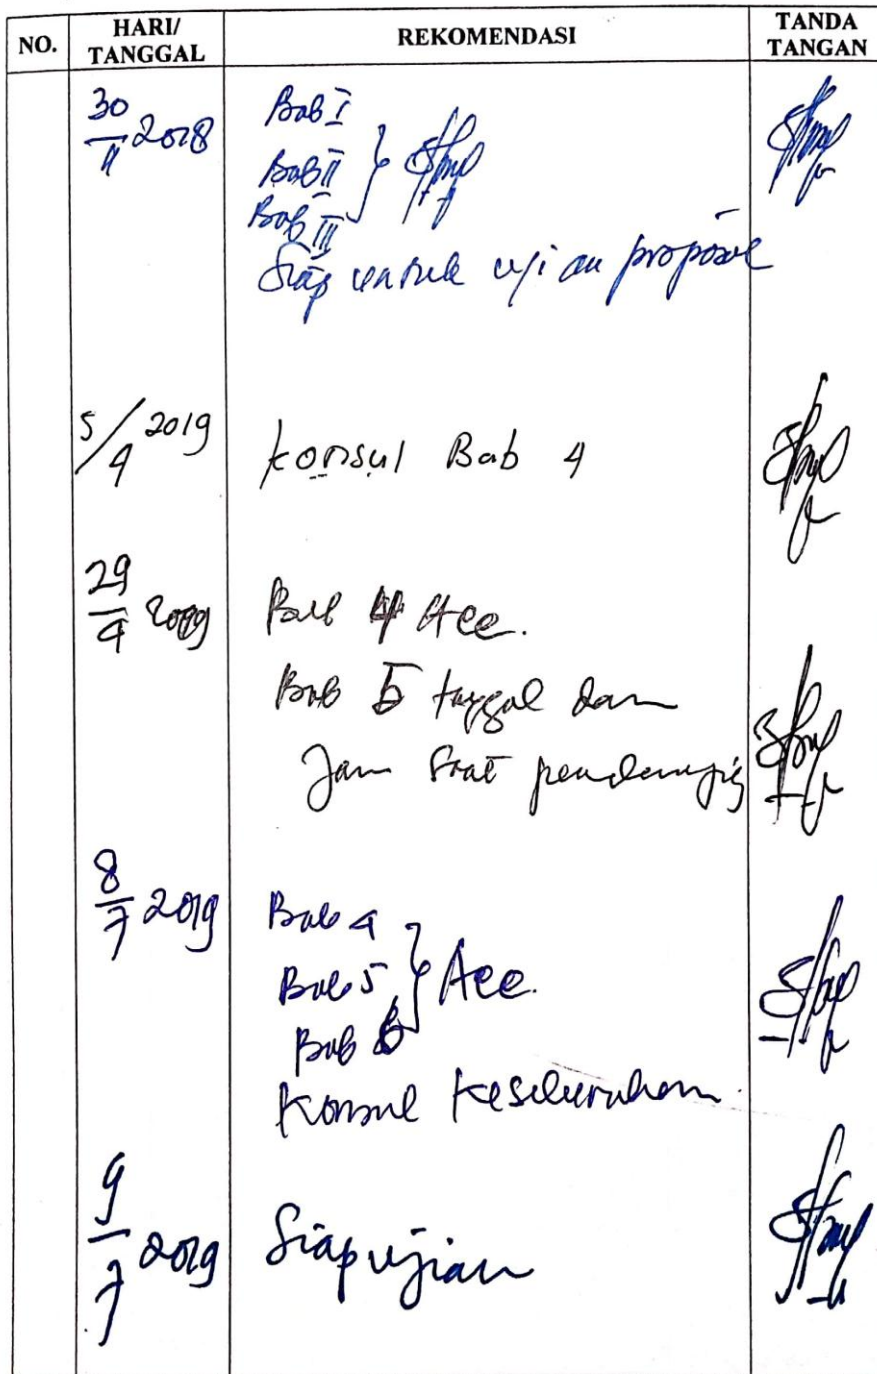 NO. HARI/ TANGGAL REKOMENDASI TANDA TANGAN
30/11 2018 Bab I
Bab II
Bab III
Siap untuk ujian proposal
5/4 2019 Konsul Bab 4
29/4 2019 Bab 4 Acc.
Bab 5 tanggal dan
Jam saat
8/7 2019 Bab 4
Bab 5 } Acc.
Bab 6
Konsul Keseluruhan
9/7 2019 Siap ujian